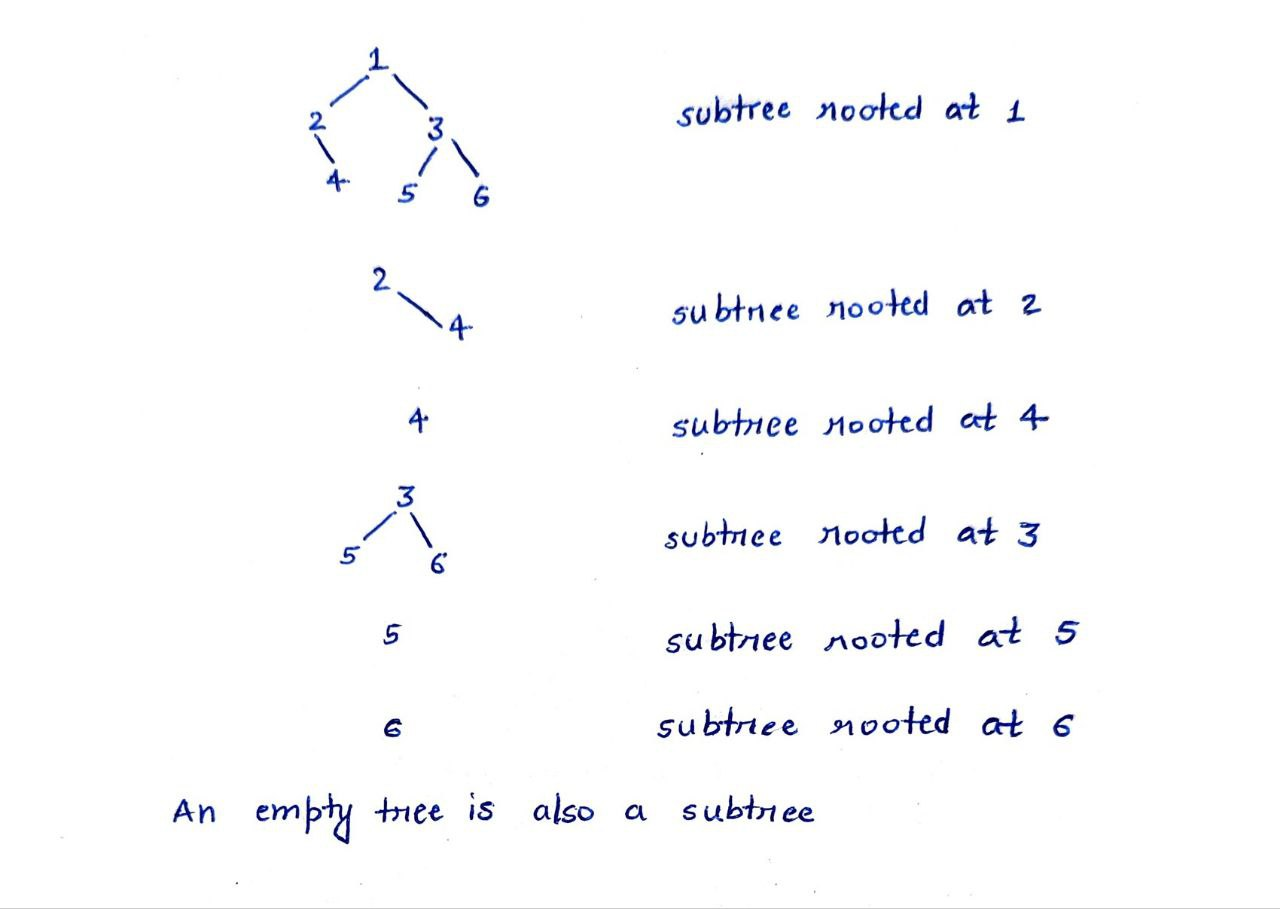 1
2 3
4 5 6
subtree rooted at 1
2
4
subtree rooted at 2
4 subtree rooted at 4
3
5 6
subtree rooted at 3
5 subtree rooted at 5
6 subtree rooted at 6
An empty tree is also a subtree